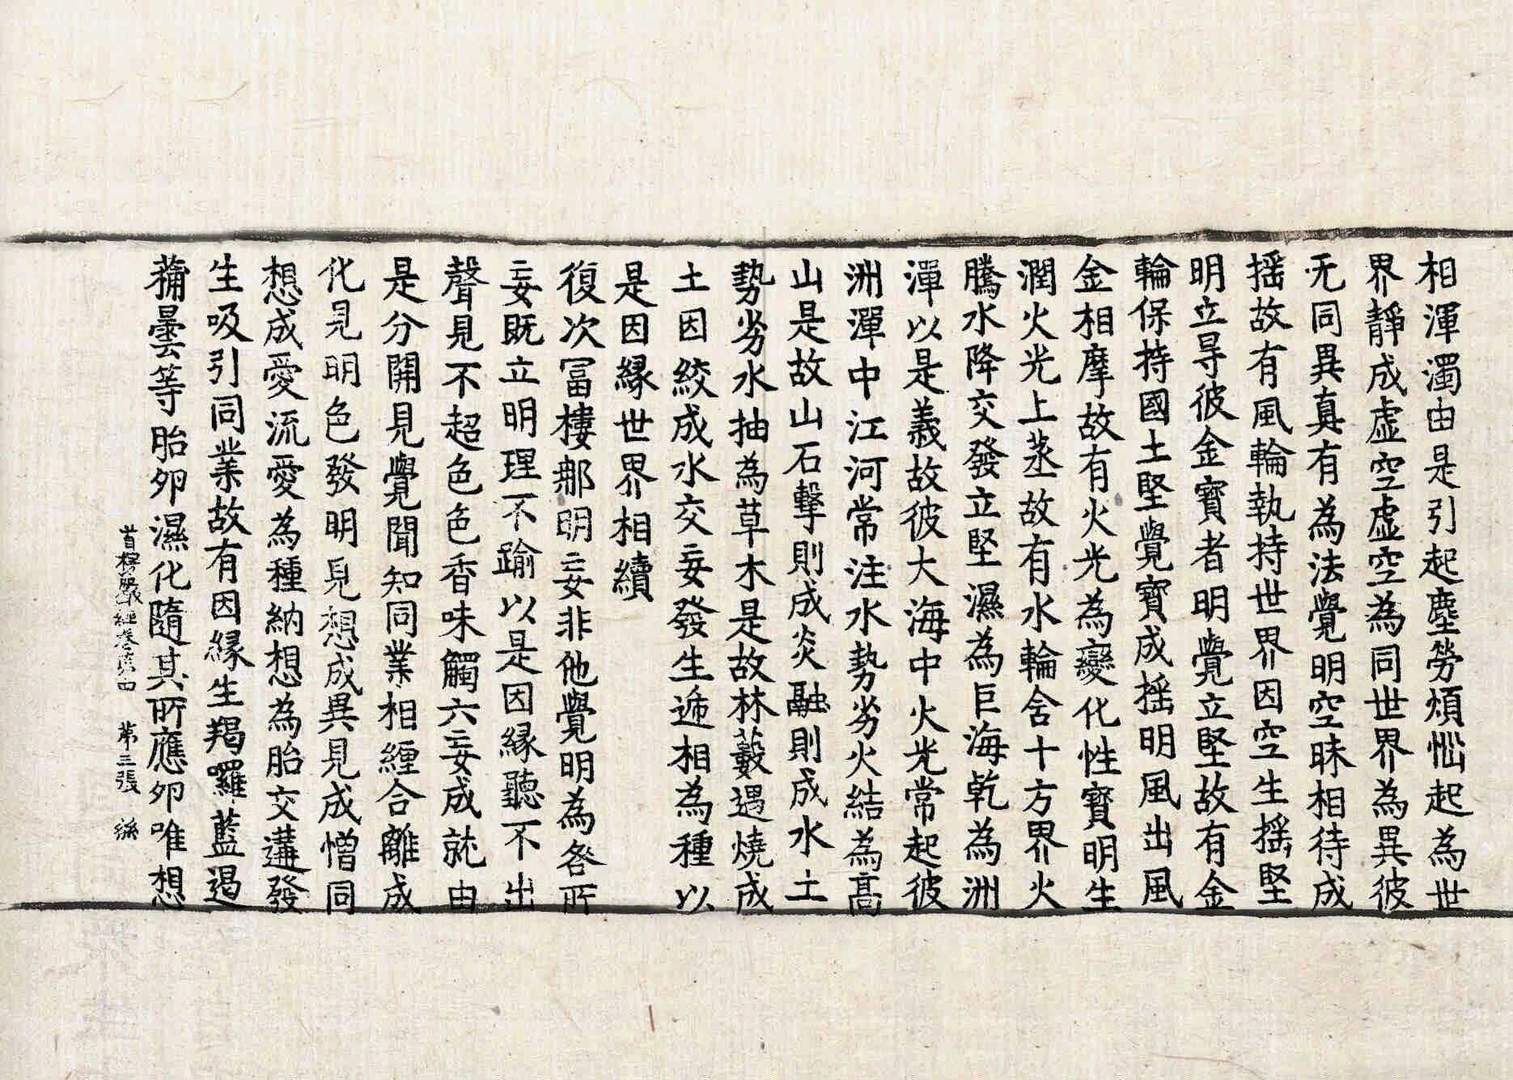 相渾濁由是引起塵勞煩惱起為世
界靜成虛空虛空為同世界為異彼
无同異真有為法覺明空昧相待成
揺故有風輪執持世界因空生揺堅
明立导彼金寶者明覺立堅故有金
輪保持國土堅覺寶成揺明風出風
金相摩故有火光為變化性寶明生
潤火光上蒸故有水輪含十方界火
騰水降交發立堅濕為巨海乾為洲
潬以是義故彼大海中火光常起彼
洲潬中江河常注水勢劣火結為高
山是故山石擊則成炎融則成水土
勢劣水抽為草木是故林藪遇燒成
土因絞成水交妄發生遞相為種以
是因緣世界相續
復次冨樓那明妄非他覺明為咎所
妄既立明理不踰以是因緣聽不出
聲見不超色色香味觸六妄成就由
是分開見覺聞知同業相纏合離成
化見明色發明見想成異見成憎同
想成愛流愛為種納想為胎交遘發
生吸引同業故有因緣生羯囉藍遏
蒱曇等胎卵濕化隨其所應卵唯想
首楞嚴經卷第四 第三張 絲